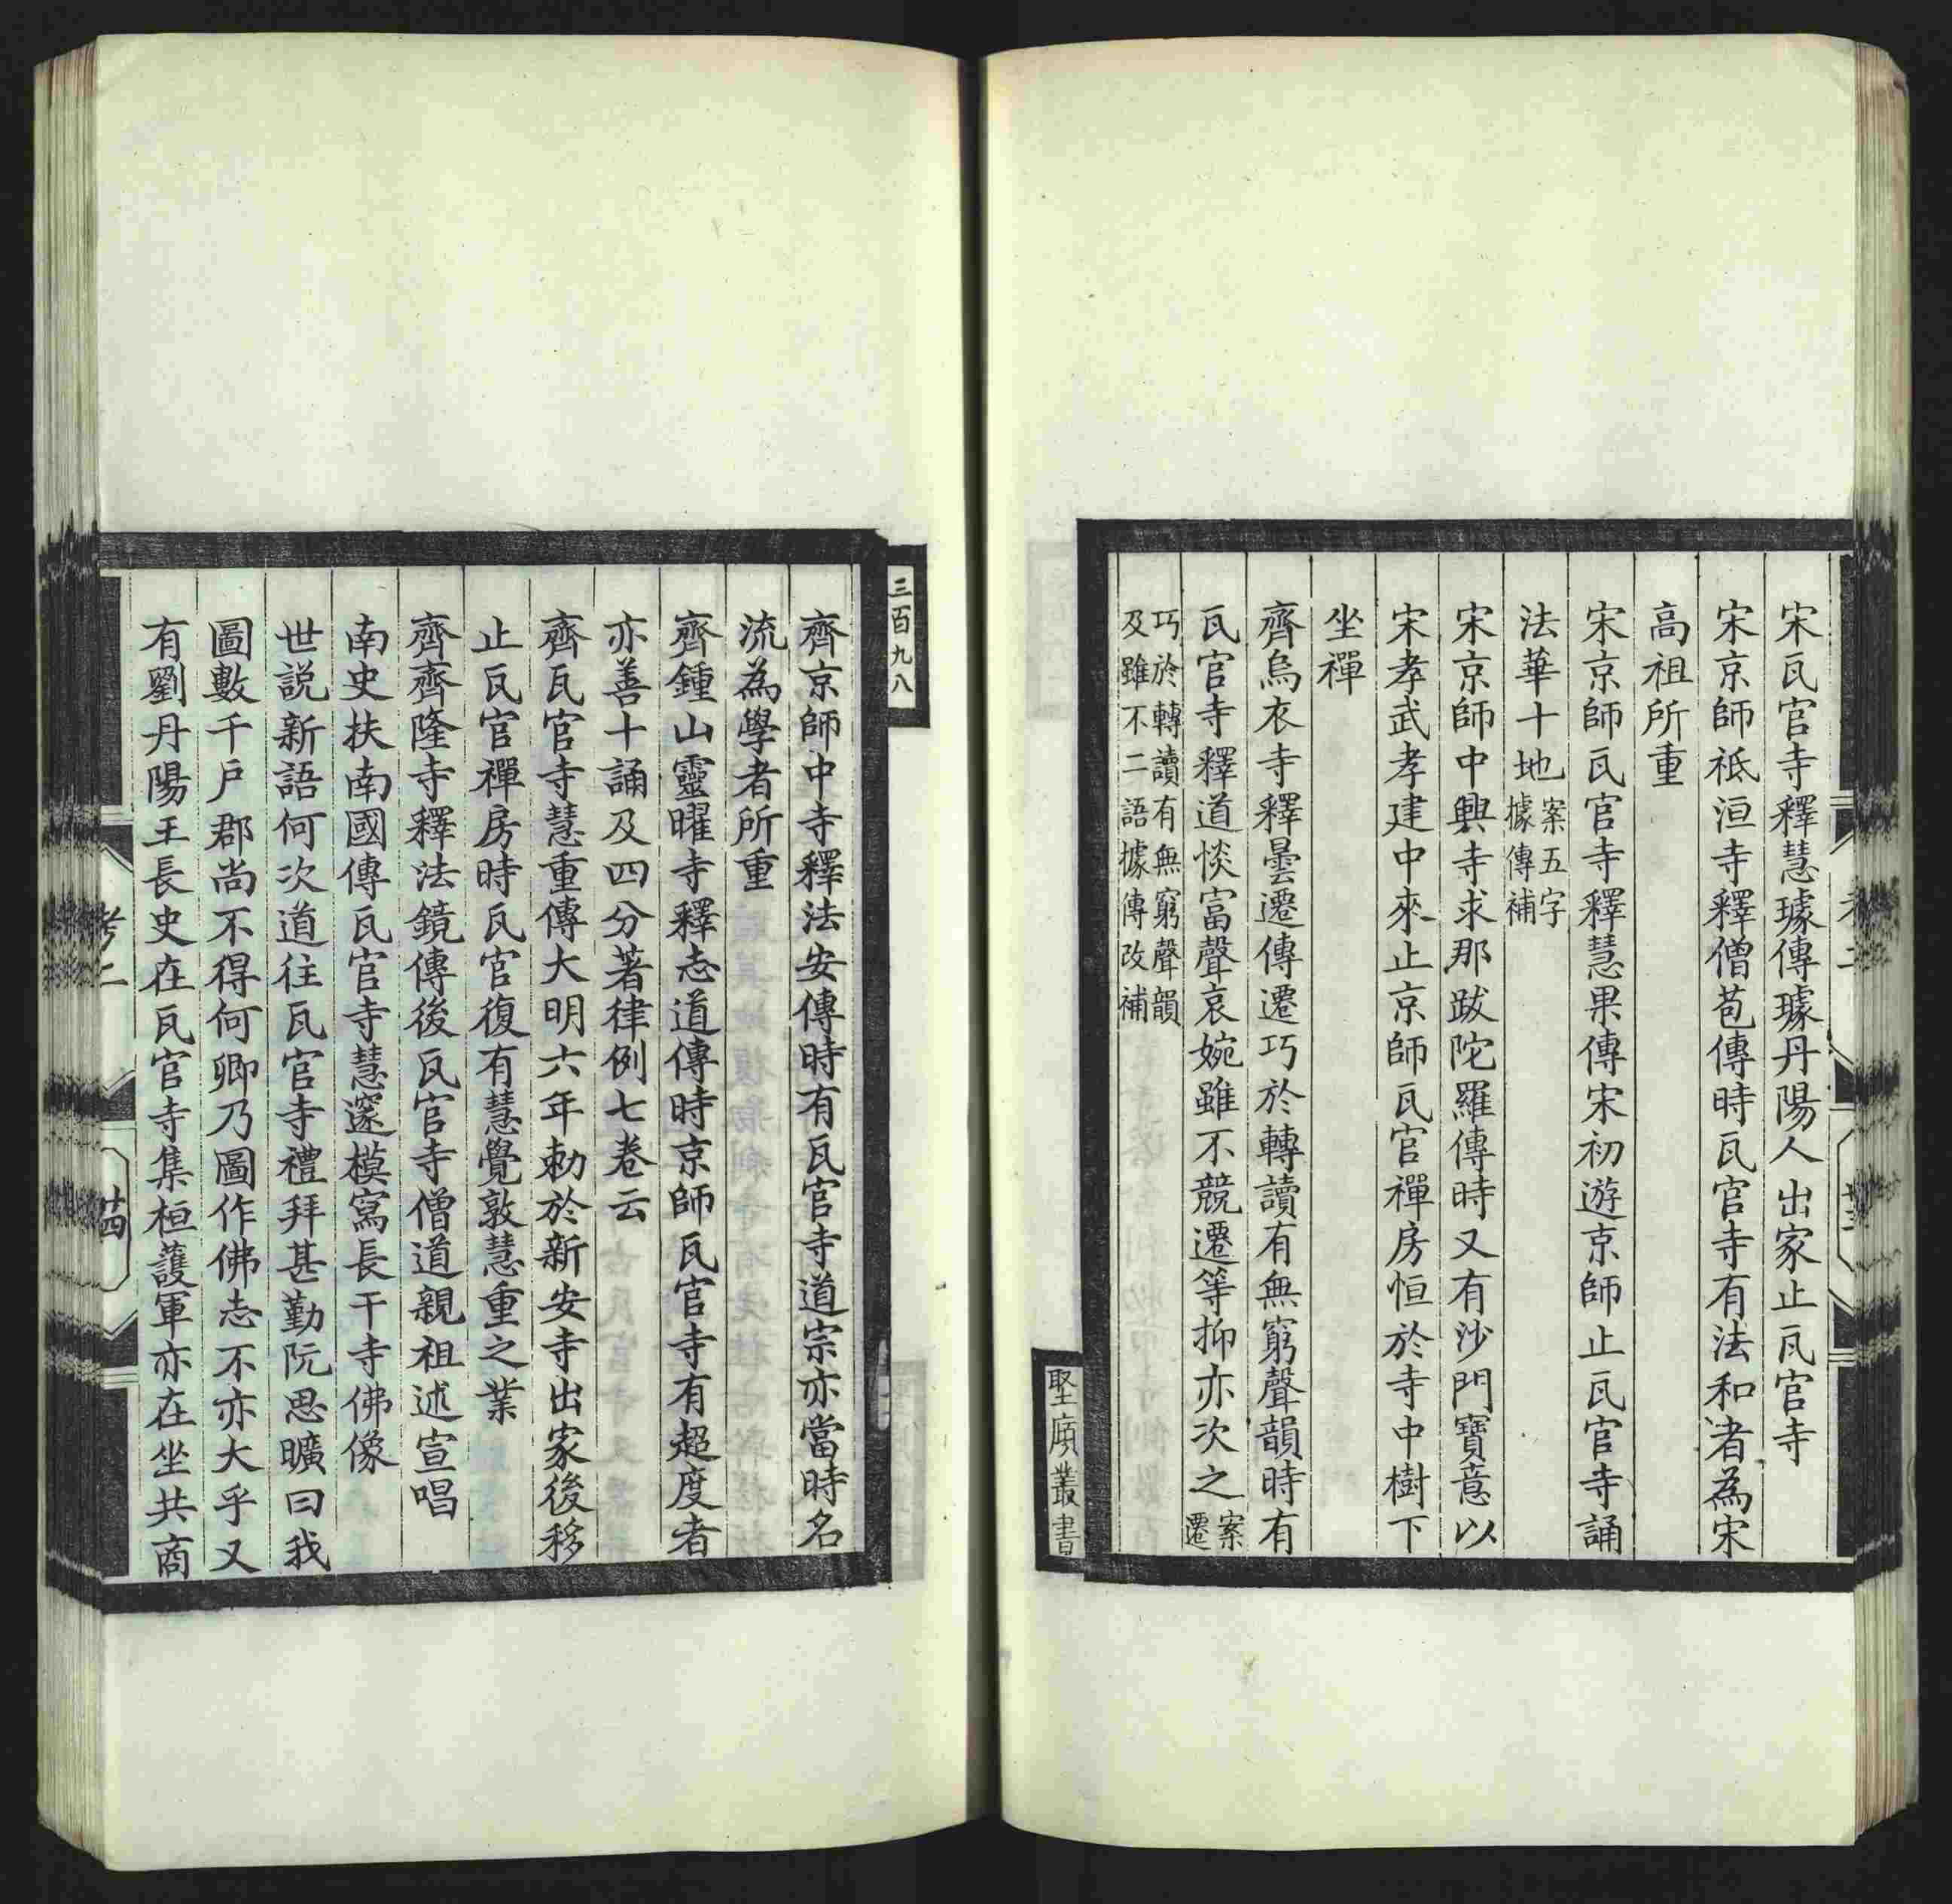 宋瓦官寺釋慧璩傳璩丹陽人出家止瓦官寺
宋京師祇洹寺釋僧苞傳時瓦官寺有法和者為宋
高祖所重
宋京師瓦官寺釋慧果傳宋初遊京師止瓦官寺誦
法華十地案五字據傳補
宋京師中興寺求那跋陀羅傳時又有沙門寶意以
宋孝武孝建中來止京師瓦官禪房恒於寺中樹下
坐禪
齊烏衣寺釋曇遷傳遷巧於轉讀有無窮聲韻時有
瓦官寺釋道惔富聲哀婉雖不競遷等抑亦次之案遷
巧於轉讀有無窮聲韻及雖不二語據傳改補
堅廎叢書
三百九八
齊京師中寺釋法安傳時有瓦官寺道宗亦當時名
流為學者所重
齊鍾山靈曜寺釋志道傳時京師瓦官寺有超度者
亦善十誦及四分著律例七卷云
齊瓦官寺慧重傳大明六年勅於新安寺出家後移
止瓦官禪房時瓦官復有慧覺敦慧重之業
齊齊隆寺釋法鏡傳後瓦官寺僧道親祖述宣唱
南史扶南國傳瓦官寺慧邃模寫長干寺佛像
世説新語何次道往瓦官寺禮拜甚勤阮思曠曰我
圖數千戶郡尚不得何卿乃圖作佛志不亦大乎又
有劉丹陽王長史在瓦官寺集桓護軍亦在坐共商
考二
廿四